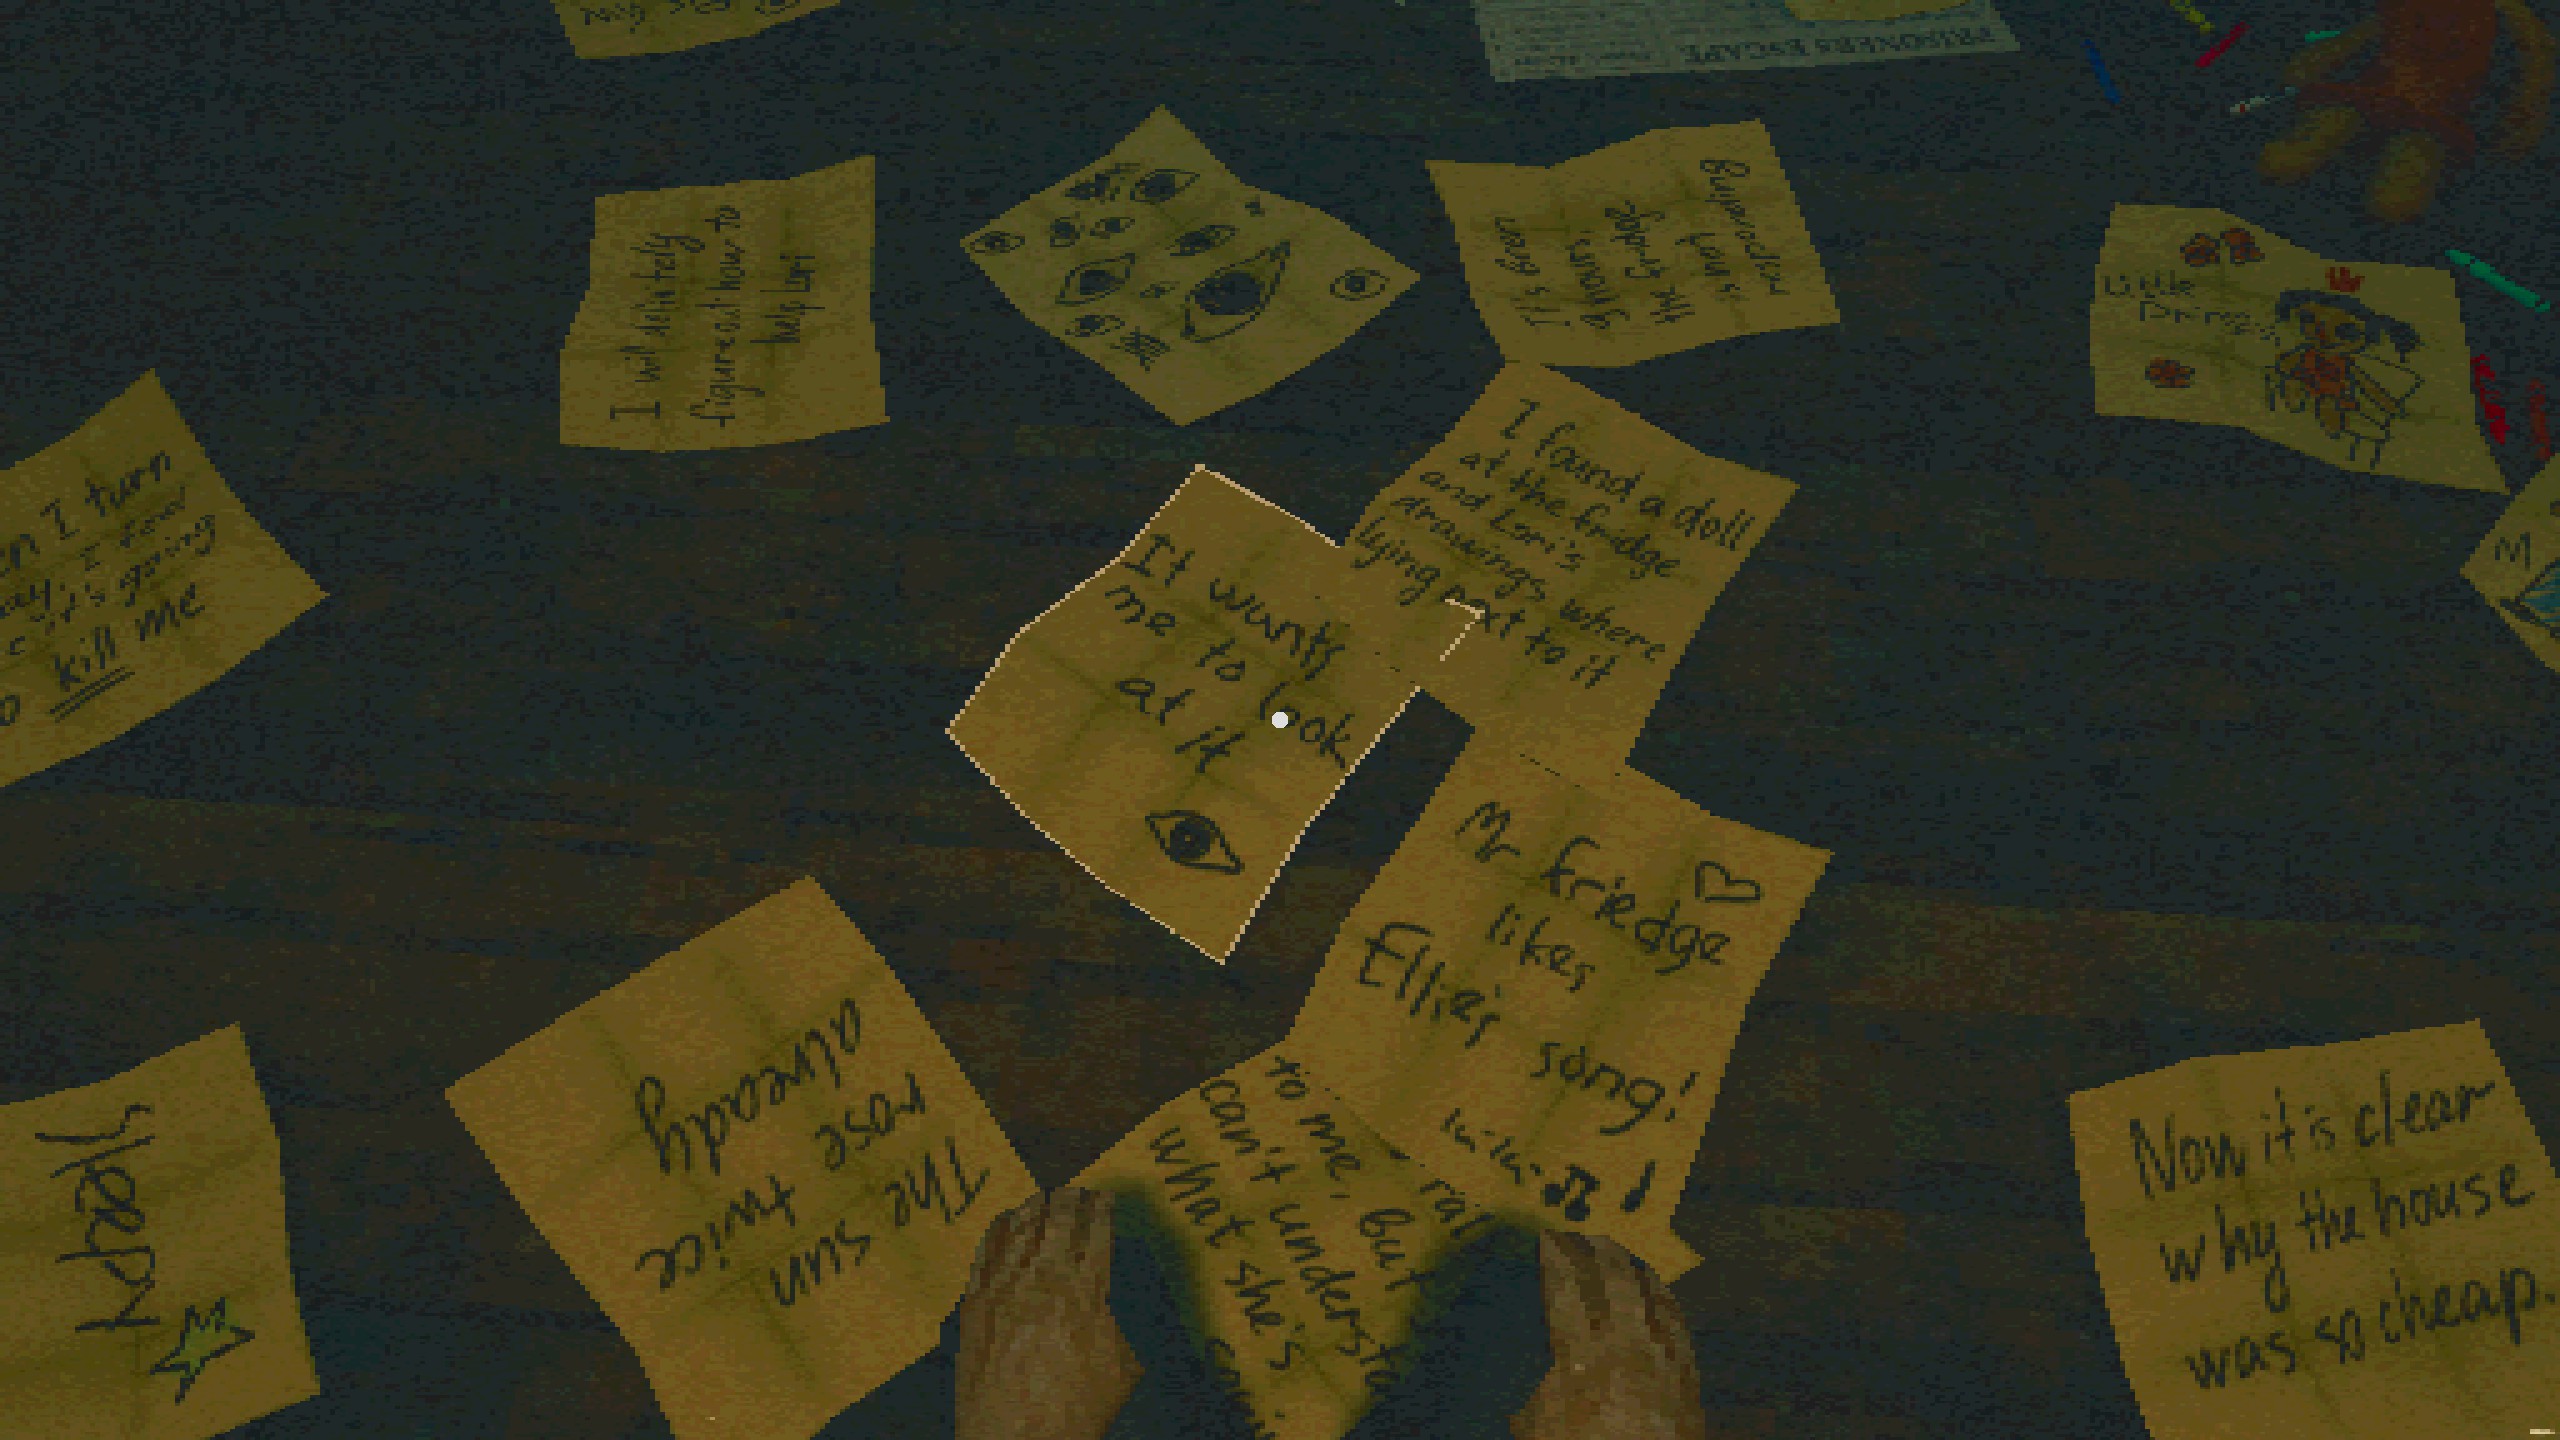 PRISONERS ESCAPE
I will definitely
figure out how to
help Lori
It's been
5 hours,
the fridge
hums
Little
Prince
I turn
I feel
it's going
kill me
I found a doll
at the fridge
and Lori's
drawings, where
lying next to it
It wants
me to look
at it
M
Mr friedge
likes
Ellie's
song!
to me, but
can't understa
what she's
The sun
rose twice
already
Sleepy
Now it is clear
why the house
was so cheap.